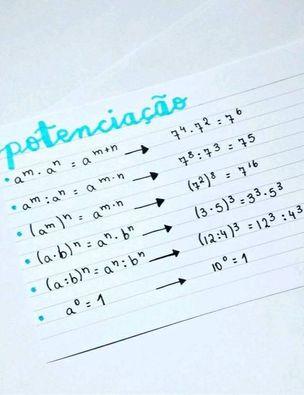 potenciação
• aᵐ . aⁿ = aᵐ⁺ⁿ → 7⁴ . 7² = 7⁶
• aᵐ : aⁿ = aᵐ⁻ⁿ → 7⁸ : 7³ = 7⁵
• (aᵐ)ⁿ = aᵐ·ⁿ → (7²)⁸ = 7¹⁶
• (a·b)ⁿ = aⁿ. bⁿ → (3·5)³ = 3³.5³
• (a:b)ⁿ = aⁿ : bⁿ → (12:4)³ = 12³ : 4³
• a⁰ = 1 → 10⁰ = 1